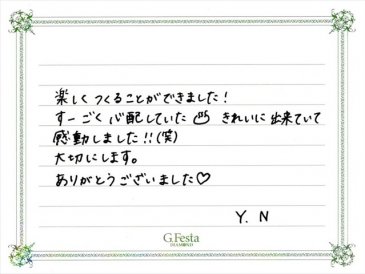 楽しくつくることができました!
すーごく心配していた きれいに出来ていて
感動しました!!(笑)
大切にします。
ありがとうございました♡
Y. N
G.Festa
DIAMOND